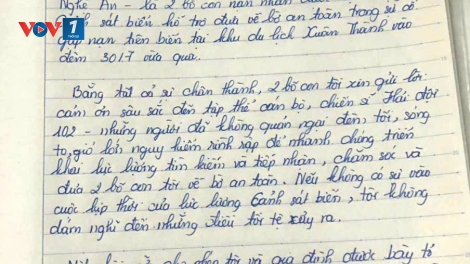 VOV1
Nghệ An - là 2 bố con nạn nhân được
Cảnh sát biển hỗ trợ đưa về bờ an toàn trong sự cố
gặp nạn trên biển tại khu du lịch Xuân Thành vào
đêm 30.7 vừa qua.
Bằng tất cả sự chân thành, 2 bố con tôi xin gửi lời
cảm ơn sâu sắc đến tập thể cán bộ, chiến sĩ Hải đội
102 - những người đã không quản ngại đêm tối, sóng
to, gió lớn, nguy hiểm rình rập để nhanh chóng triển
khai lực lượng tìm kiếm và tiếp nhận, chăm sóc và
đưa 2 bố con tôi về bờ an toàn. Nếu không có sự vào
cuộc kịp thời của lực lượng Cảnh sát biển, tôi không
dám nghĩ đến những điều tồi tệ xảy ra.
Một lần nữa cho phép tôi và gia đình được bày tỏ